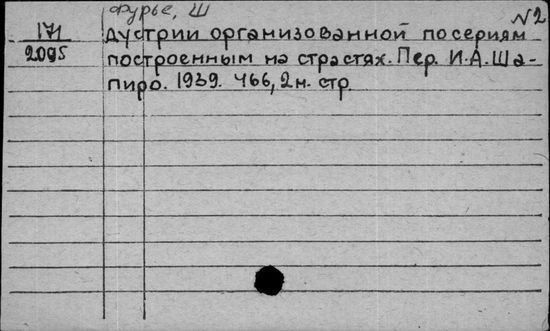 Фурье, Ш
№2
171
2095
дустрии организованной по сериям
построенным на страстях. Пер. И.А.Ша-
пиро. 1939. 466, 2н. стр.